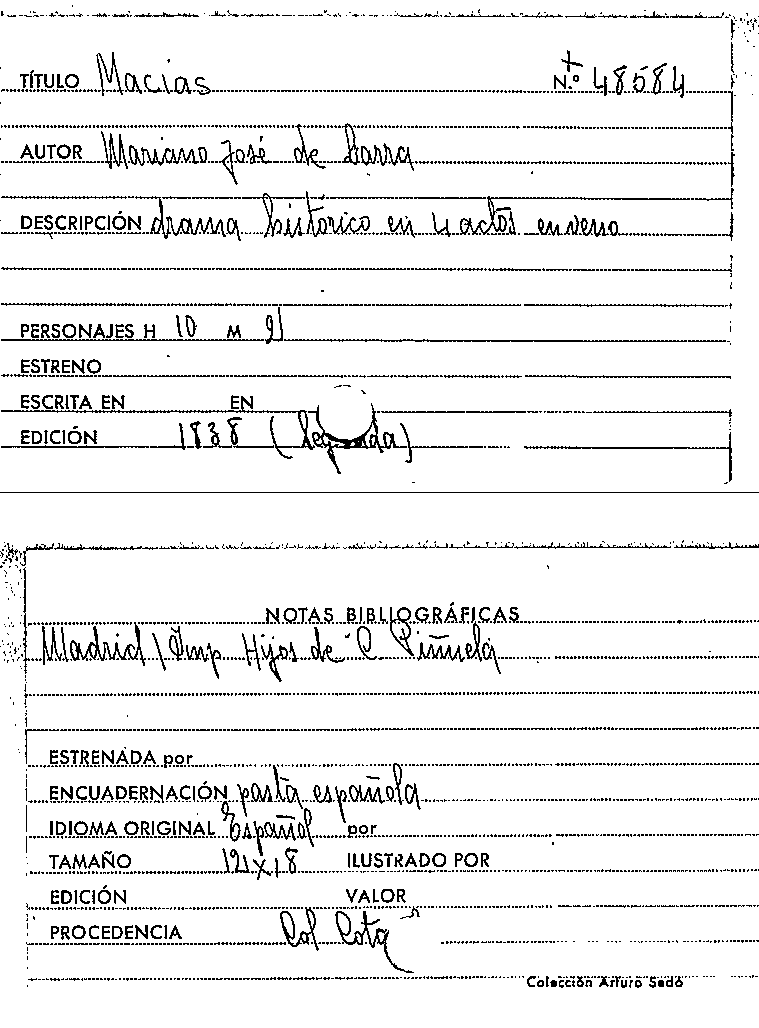 TÍTULO Macias N.º 48584
AUTOR Mariano José de Larra
DESCRIPCIÓN drama histórico en 4 actos en verso
PERSONAJES H 10 M 2
ESTRENO
ESCRITA EN EN
EDICIÓN 1838 (Segunda)
NOTAS BIBLIOGRÁFICAS
Madrid / Imp. Hijos de C. Piñuela
ESTRENADA por
ENCUADERNACIÓN pasta española
IDIOMA ORIGINAL Español por
TAMAÑO 12x18 ILUSTRADO POR
EDICIÓN VALOR
PROCEDENCIA Col Cota
Colección Arturo Sedó